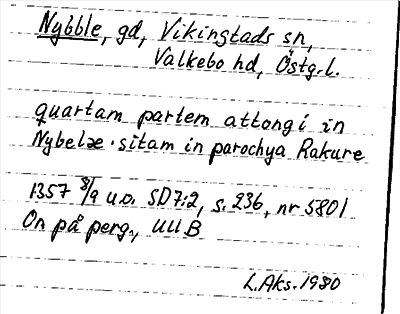 Nybble, gd, Vikingstads sn,
Valkebo hd, Östg.l.
quartam partem attongi in
Nybelæ · sitam in parochya Rakure
1357 8/9 u.o. SD7:2, s. 236, nr 5801
On på perg., UUB
L.Aks. 1980